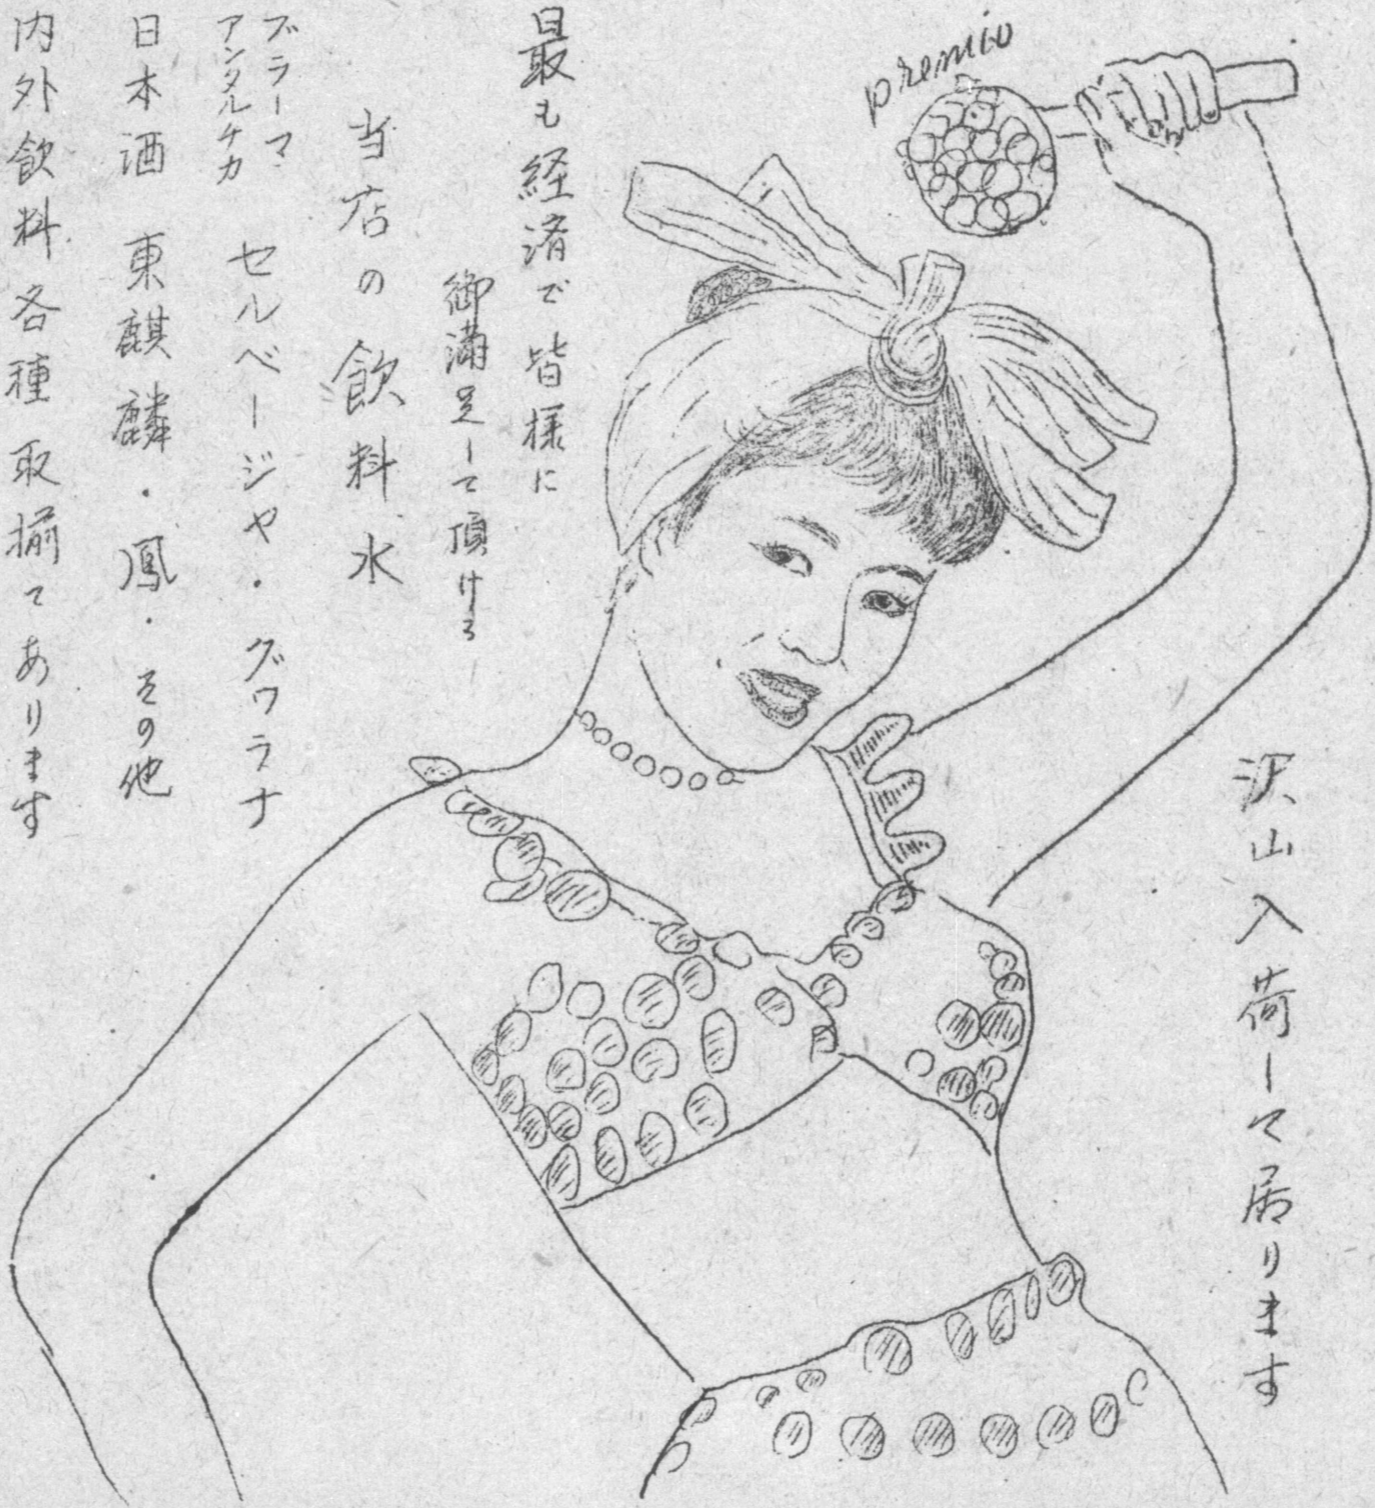 premio
沢山入荷して居ります
最も経済で皆様に
御満足して頂ける
当店の飲料水
ブラーマ・
アンタルチカ
セルベージャ・グワラナ
日本酒 東麒麟・鳳・その他
内外飲料各種取揃てあります